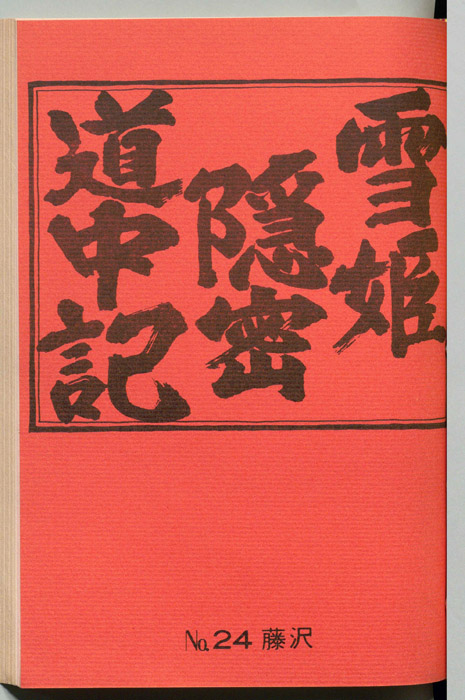 雪姫
隠密
道中記
No.24 藤沢